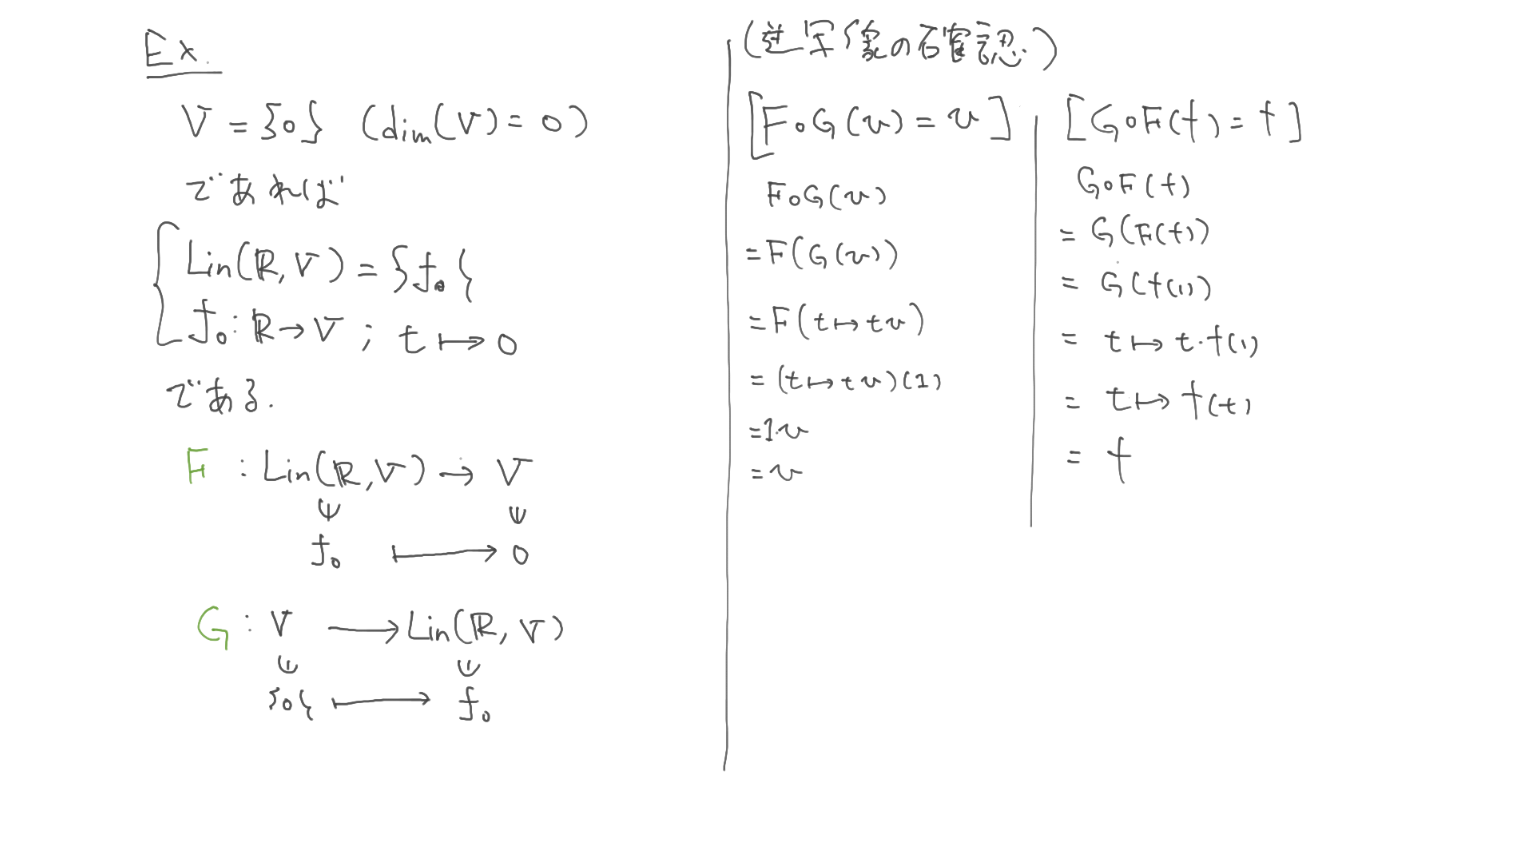 Ex.
V = {0} (dim(V) = 0)
であれば
Lin(ℝ, V) = {f₀}
f₀ : ℝ → V ; t ↦ 0
である.
F : Lin(ℝ, V) → V
⋓ ⋓
f₀ ↦ 0
G : V → Lin(ℝ, V)
⋓ ⋓
{0} ↦ f₀
(逆写像の確認.)
[F∘G(v) = v]
F∘G(v)
= F(G(v))
= F(t ↦ tv)
= (t ↦ tv)(1)
= 1·v
= v
[G∘F(f) = f]
G∘F(f)
= G(F(f))
= G(f(1))
= t ↦ t·f(1)
= t ↦ f(t)
= f